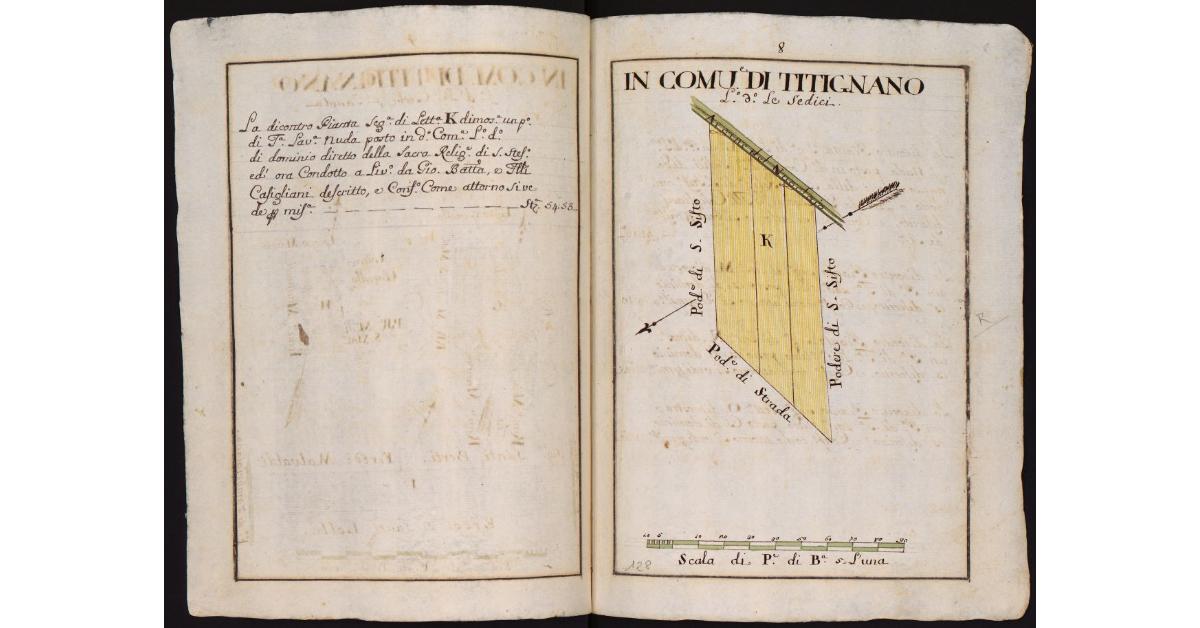 La dicontro Pianta Seg.ª di Lett.ª K dimos.ª un p.º
di T.ª Lav.ª nuda posto in d.º Com.e L.º d.º
di dominio diretto della Sacra Relig.e di S. Stef.º
ed' ora Condotto a Liv.º da Gio. Batta, e Flli
Casigliani descritto, e Conf.º Come attorno Si ve
de mis.ª Stª. 54.58
8
IN COMU.e DI TITIGNANO
L.º d.º Le Sedici.
K
Pod.º di S. Sisto
Podere di S. Sisto
Pod.e di Strada
10 5 10 20 30 40 50 60 70 80 90
Scala di P.e di B.a 5 L'una
128
R